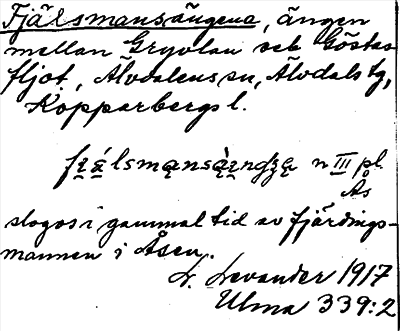 Fjälsmansängena, ängen
mellan Gryvlan och Göstas
fljot, Älvdalens sn, Älvdals tg,
Kopparbergs l.
n III pl.
Ås
slogos i gammal tid av fjärdings-
mannen i Åsen.
L. Levander 1917
Ulma 339:2